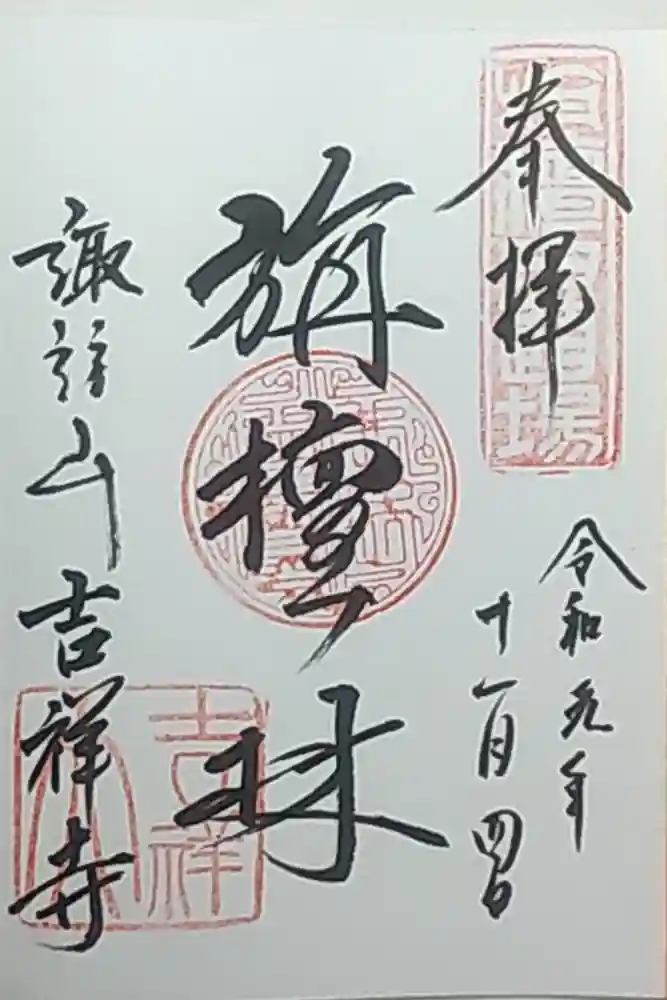 奉拝
令和元年
十一月四日
旃檀林
諏訪山吉祥寺
吉祥